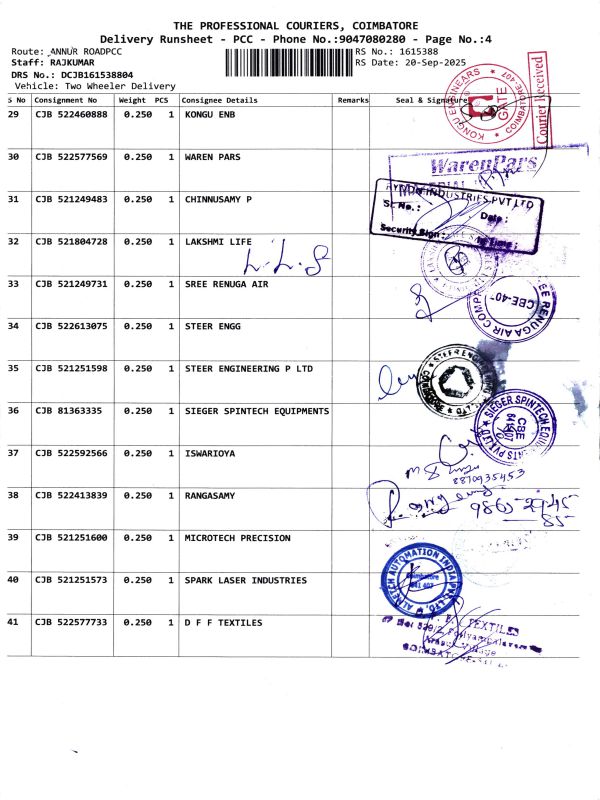 THE PROFESSIONAL COURIERS, COIMBATORE
Delivery Runsheet - PCC - Phone No.:9047080280 - Page No.:4
Route: ANNUR ROADPCC
RS No.: 1615388
Staff: RAJKUMAR
RS Date: 20-Sep-2025
DRS No.: DCJB161538804
Vehicle: Two Wheeler Delivery
S No Consignment No Weight PCS Consignee Details Remarks Seal & Signature
29 CJB 522460888 0.250 1 KONGU ENB
KONGU ENGINEARS
GATE
COIMBATORE
407
Courier Received
30 CJB 522577569 0.250 1 WAREN PARS
WarenPars
31 CJB 521249483 0.250 1 CHINNUSAMY P
INDUSTRIES PVT LTD
Sl. No.:
Date:
Security Sign:
Time:
32 CJB 521804728 0.250 1 LAKSHMI LIFE
L.L.S
33 CJB 521249731 0.250 1 SREE RENUGA AIR
RENUGA AIR COMPR
CBE-40
34 CJB 522613075 0.250 1 STEER ENGG
35 CJB 521251598 0.250 1 STEER ENGINEERING P LTD
STEER ENGINEERING
36 CJB 81363335 0.250 1 SIEGER SPINTECH EQUIPMENTS
SIEGER SPINTECH EQUIPMENTS PVT LTD
CBE
641 407
37 CJB 522592566 0.250 1 ISWARIOYA
8870935453
38 CJB 522413839 0.250 1 RANGASAMY
39 CJB 521251600 0.250 1 MICROTECH PRECISION
40 CJB 521251573 0.250 1 SPARK LASER INDUSTRIES
AUTOMATION INDIA PVT LTD
Coimbatore
641 407
41 CJB 522577733 0.250 1 D F F TEXTILES
TEXTILES
Village
COIMBATORE